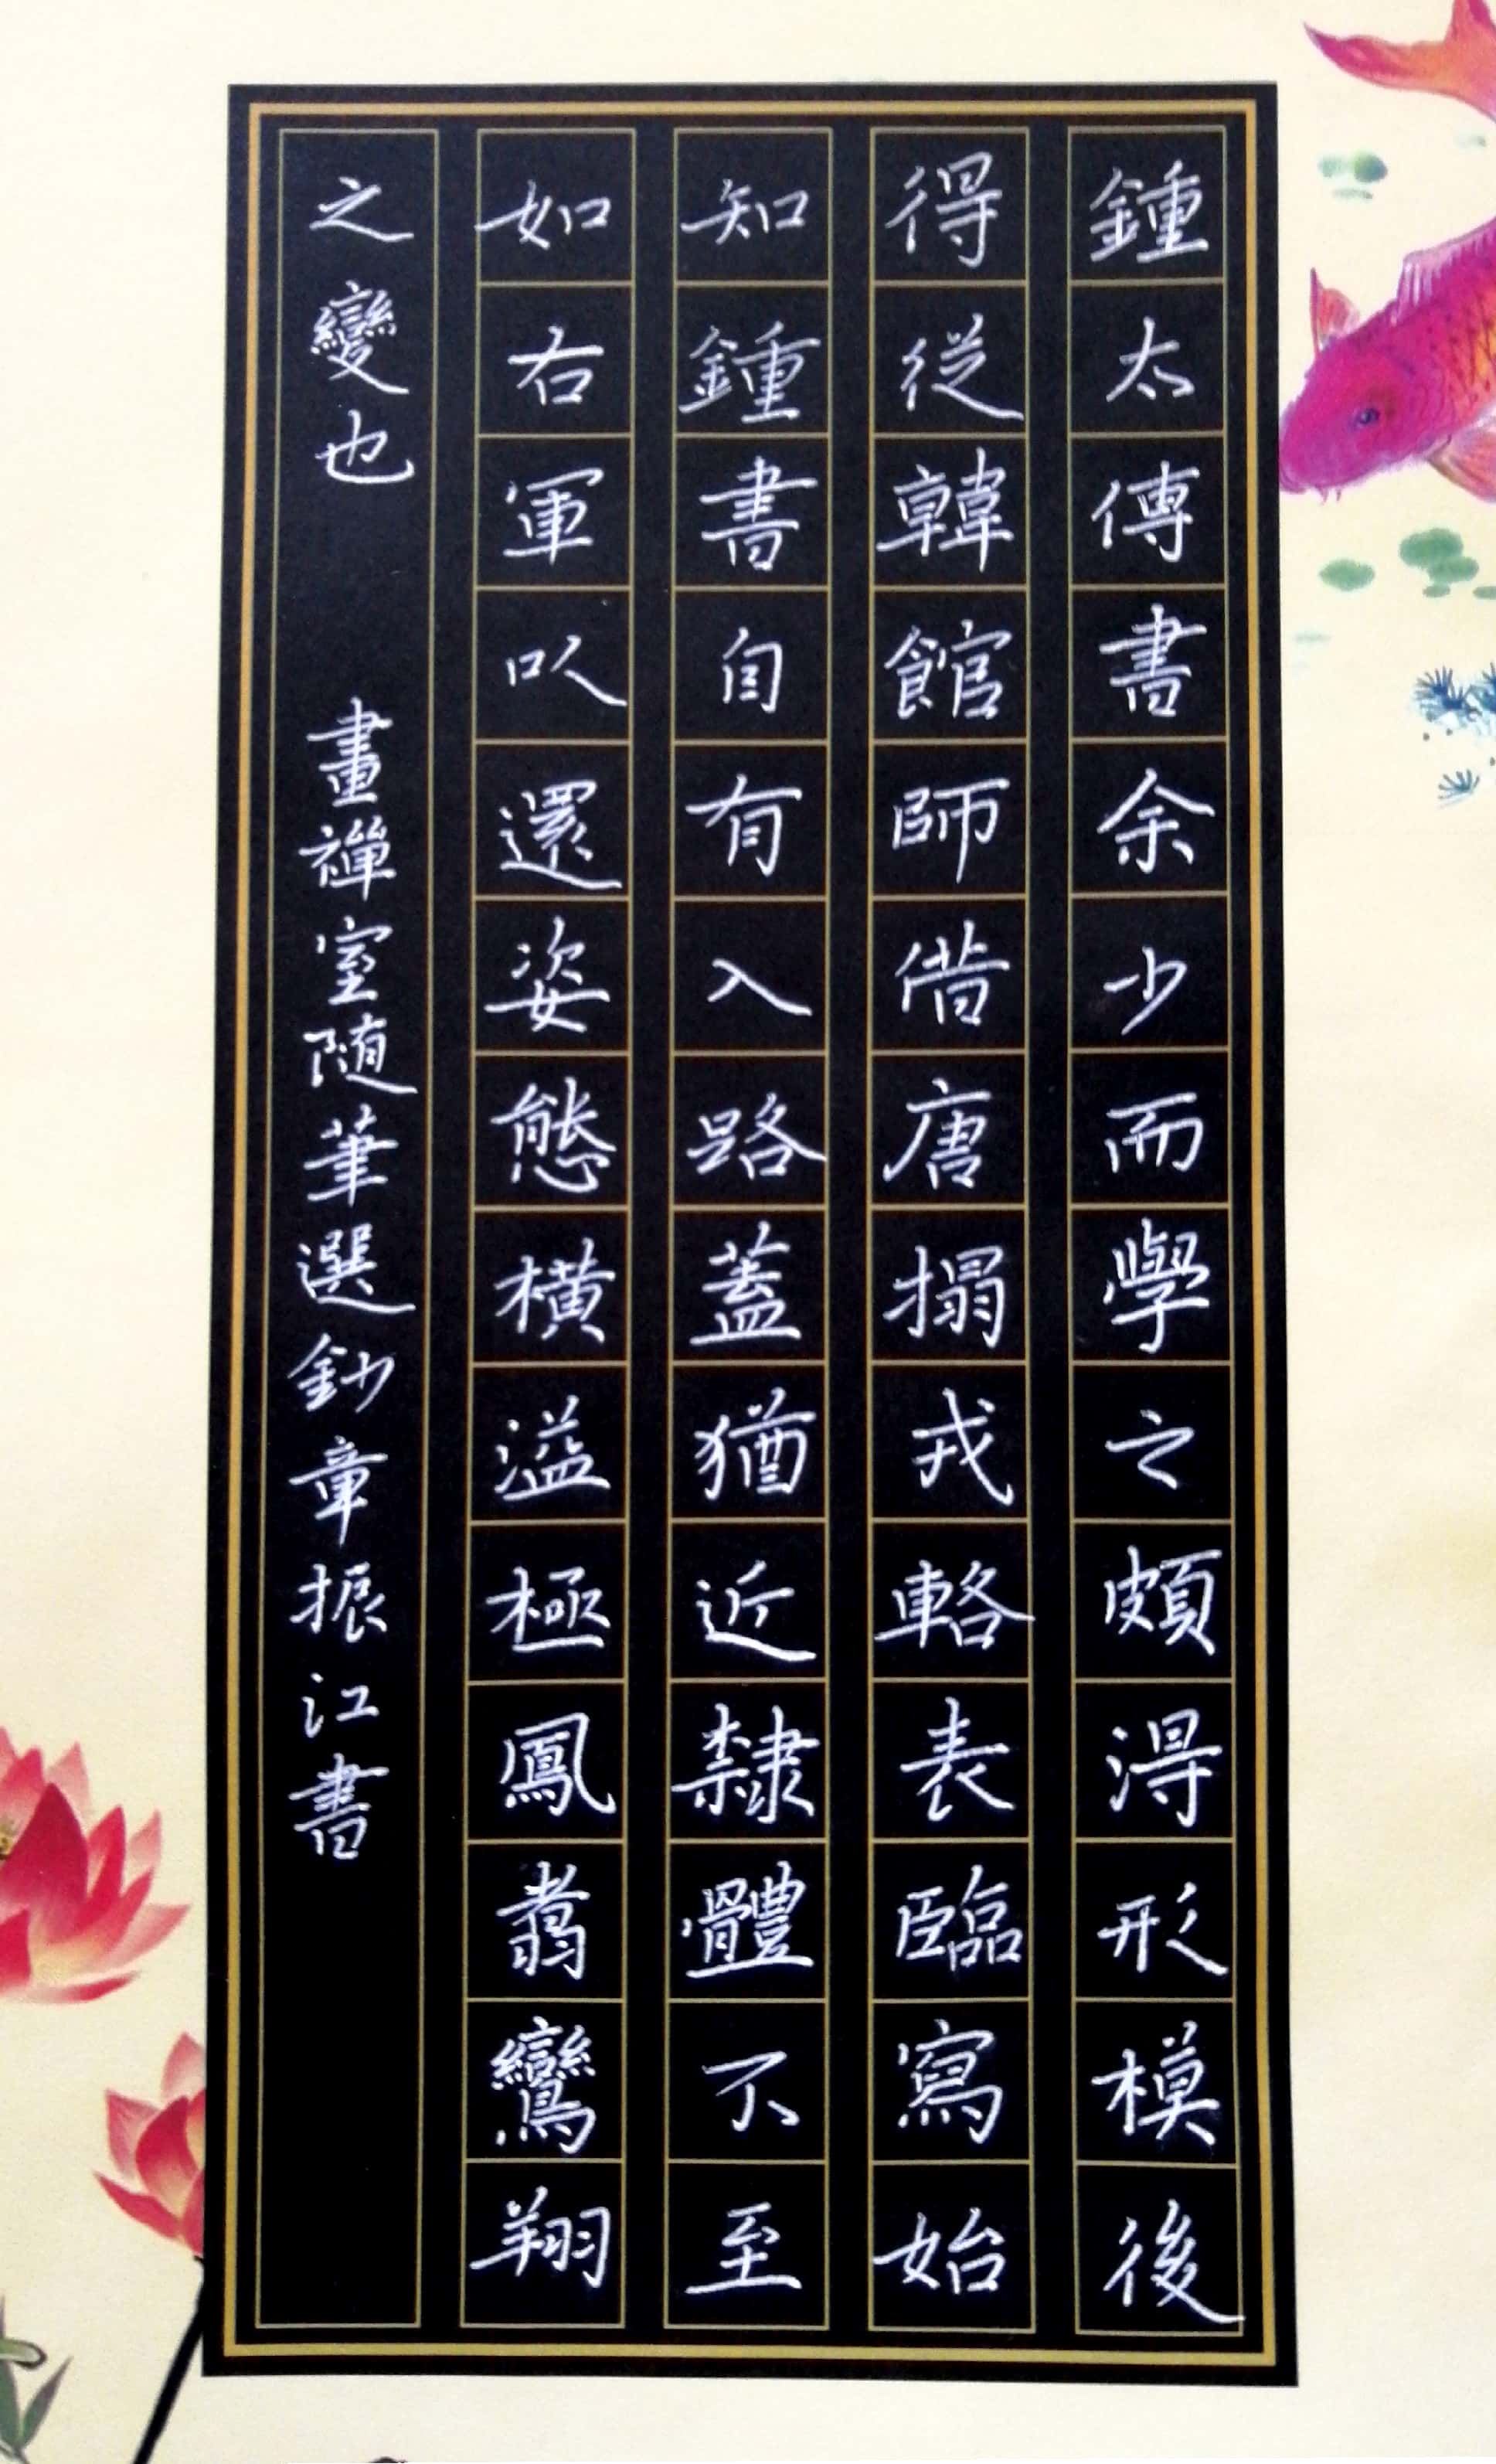 鍾太傅書余少而學之頗淂形模後
得從韓館師借唐搨戎輅表臨寫始
知鍾書自有入路蓋猶近隸體不至
如右軍以還姿態橫溢極鳳翥鸞翔
之變也 畫禪室随筆選鈔章振江書